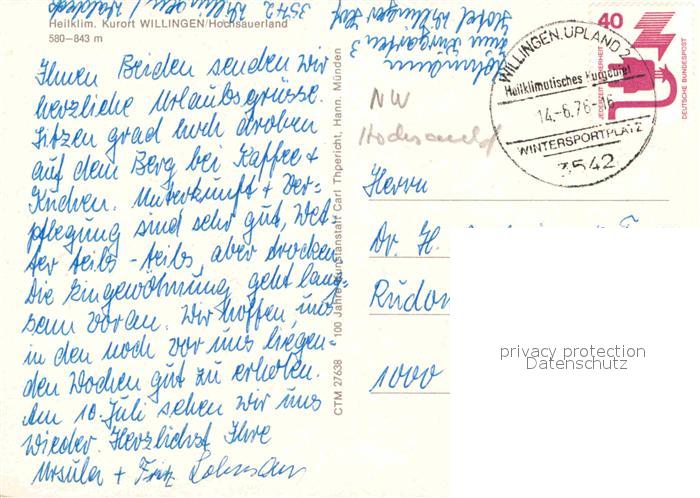 Heilklim. Kurort WILLINGEN/Hochsauerland
580-843 m
Ihnen Beiden senden wir
herzliche Urlaubsgrüsse.
Sitzen grad hoch droben
auf dem Berg bei Kaffee +
Kuchen. Unterkunft + Ver-
pflegung sind sehr gut, Wet-
ter teils - teils, aber trocken.
Die Eingewöhnung geht lang-
sam voran. Wir hoffen, uns
in den noch vor uns liegen-
den Wochen gut zu erholen.
Am 10. Juli sehen wir uns
wieder. Herzlichst Ihre
Ursula + Fritz
3542 Willingen
Hotel Willinger Hof
CTM 27638 100 Jahre Kunstanstalt Carl Thoericht, Hann. Münden
NW
WILLINGEN, UPLAND 2
Heilklimatisches Kurgebiet
14.-6.76-16
WINTERSPORTPLATZ
3542
40
JEDERZEIT SICHERHEIT
DEUTSCHE BUNDESPOST
Herrn
Dr. H.
1000
privacy protection
Datenschutz